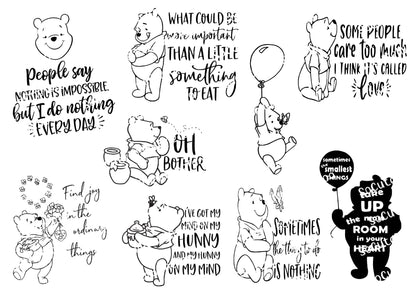 People say
NOTHING IS IMPOSSIBLE,
but I do nothing
EVERY DAY
WHAT COULD BE
more important
THAN A LITTLE
something
TO EAT
SOME PEOPLE
care too much
I THINK IT'S CALLED
love
OH
BOTHER
sometimes
the
smallest
THINGS
take
UP
the most
ROOM
in your
HEART
Find joy
in the
ordinary
things
I'VE GOT MY
MIND ON MY
HUNNY
AND MY HUNNY
ON MY MIND
SOMETIMES
the thing to do
IS NOTHING